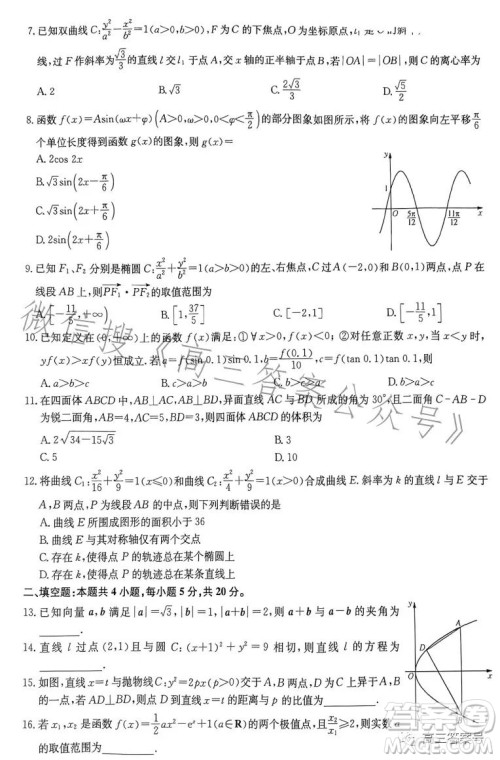 7. 已知双曲线 C: y²/a² - x²/b² = 1(a>0, b>0), F 为 C 的下焦点, O 为坐标原点, l₁ 是 C 的
线, 过 F 作斜率为 √3/3 的直线 l 交 l₁ 于点 A, 交 x 轴的正半轴于点 B, 若|OA|=|OB|, 则 C 的离心率为
A. 2 B. √3 C. 2√3/3 D. √5/2
8. 函数 f(x)=Asin(ωx+φ)(A>0, ω>0, 0<φ<π/2) 的部分图象如图所示, 将 f(x) 的图象向左平移 π/6
个单位长度得到函数 g(x) 的图象, 则 g(x)=
A. 2cos 2x
B. √3sin(2x-π/6)
C. √3sin(2x+π/6)
D. 2sin(2x+π/6)
y
1
O 5π/12 11π/12 x
9. 已知 F₁、F₂ 分别是椭圆 C: x²/a²+y²/b²=1(a>b>0) 的左、右焦点, 过 A(-2,0) 和 B(0,1) 两点, 点 P 在
线段 AB 上, 则 PF₁·PF₂ 的取值范围为
A. [-11/5, +∞) B. [1, 37/5] C. [-2, 1] D. [-11/5, 1]
10. 已知定义在(0,+∞)上的函数 f(x) 满足: ①∀x>0, f(x)<0; ②对任意正数 x, y, 当 x<y 时,
yf(x)>xf(y) 恒成立. 若 a=f(sin 0.1)sin 0.1, b=f(0.1)/10, c=f(tan 0.1)tan 0.1, 则
A. a>b>c B. c>b>a C. b>a>c D. a>c>b
11. 在四面体 ABCD 中, AB⊥BC, AB⊥BD, 异面直线 AC 与 BD 所成的角为 30°, 且二面角 C-AB-D
为锐二面角, AB=4, AC=5, BD=3, 则四面体 ABCD 的体积为
A. 2√(34-15√3) B. 3
C. 5 D. 10
12. 将曲线 C₁: x²/16+y²/9=1(x≤0) 和曲线 C₂: x²/4+y²/9=1(x>0) 合成曲线 E. 斜率为 k 的直线 l 与 E 交于
A, B 两点, P 为线段 AB 的中点, 则下列判断错误的是
A. 曲线 E 所围成图形的面积小于 36
B. 曲线 E 与其对称轴仅有两个交点
C. 存在 k, 使得点 P 的轨迹总在某个椭圆上
D. 存在 k, 使得点 P 的轨迹总在某条直线上
二、填空题: 本题共 4 小题, 每小题 5 分, 共 20 分.
13. 已知向量 a, b 满足|a|=√3, |b|=1, |a+b|=2, 则 a+b 与 a-b 的夹角为
________.
14. 直线 l 过点(2,1)且与圆 C: (x+1)²+y²=9 相切, 则直线 l 的方程为
________.
15. 如图, 直线 x=t 与抛物线 C: y²=2px(p>0) 交于 A, B 两点, D 为 C 上异于 A, B
的一点, 若 AD⊥BD, 则点 D 到直线 x=t 的距离与 p 的比值为________.
16. 若 x₁, x₂ 是函数 f(x)=1/2ax²-eˣ+1(a∈R) 的两个极值点, 且 x₂/x₁≥2, 则实数 a
的取值范围为________.
D A
B
微信搜《高三答案公众号》
高三答案号